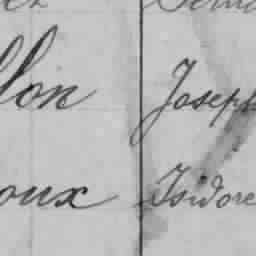 llon Joseph
oux Isidore